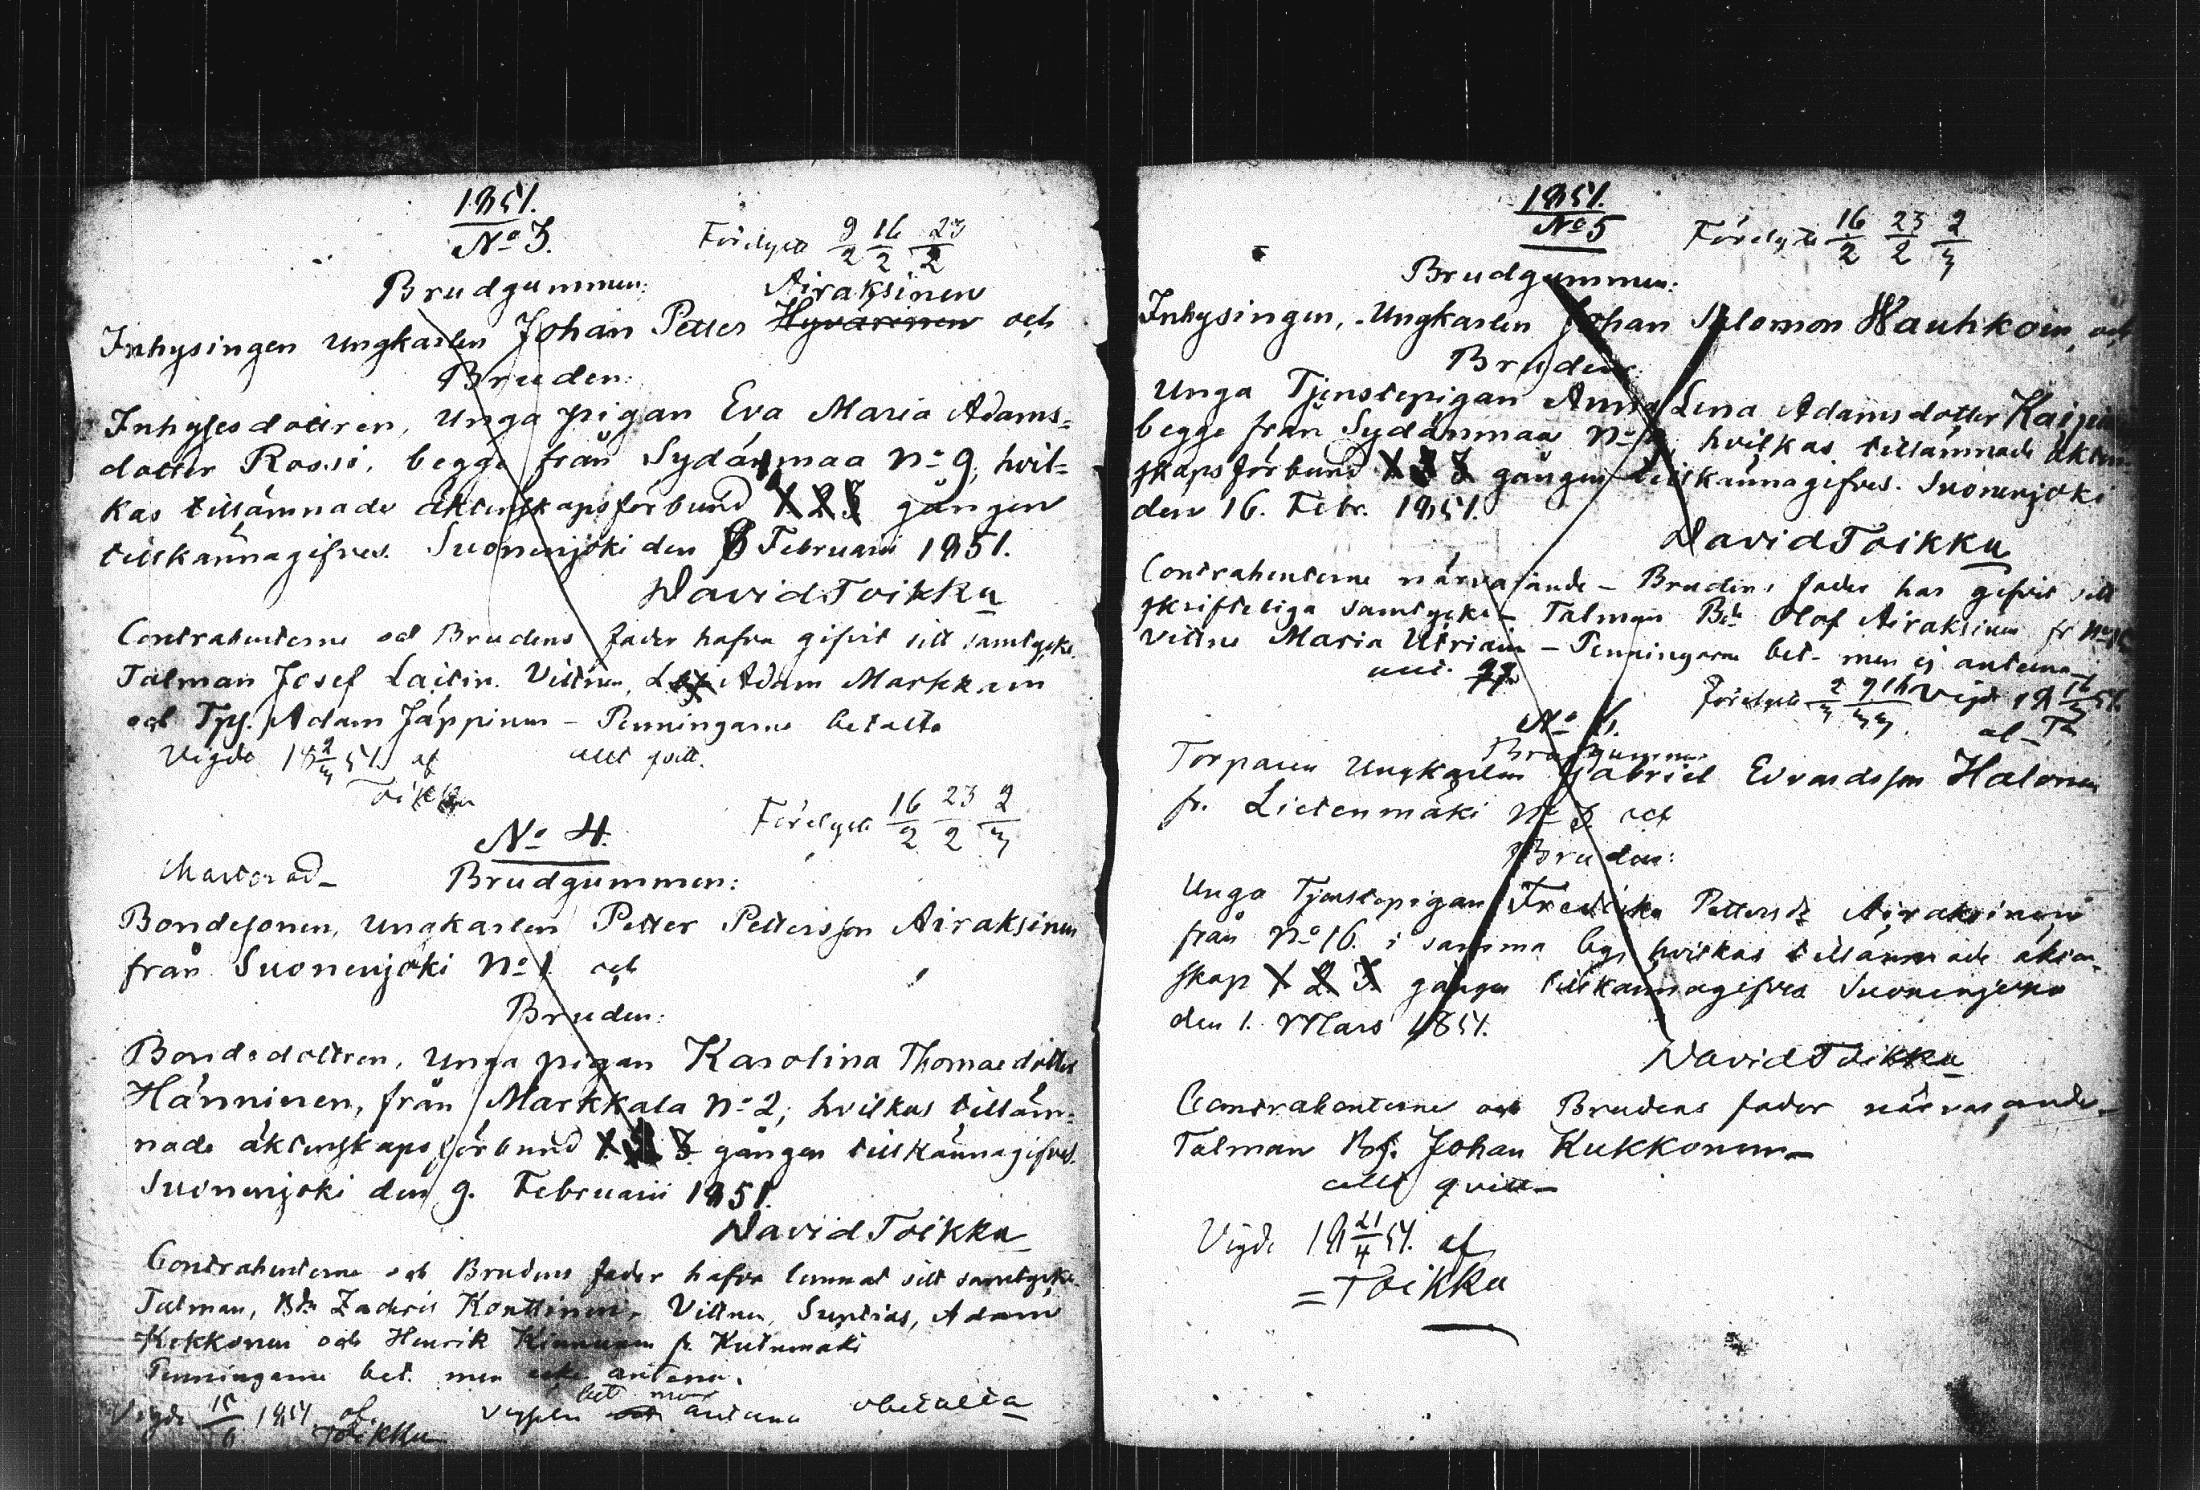 1851.
No 3.
Förelyste 9/2 16/2 23/2
Brudgummen: Airaksinen
Inhysingen Ungkarlen Johan Petter Hyvärinen och
Bruden:
Inhysesdottren, Unga pigan Eva Maria Adams=
dotter Rossi, begge från Sydänmaa No 9, hvil=
kas tillämnade äktenskapsförbund 1 2 3 gången
tillkännagifves. Suonenjoki den 8 Februarii 1851.
David Toikka
Contrahenterne och Brudens fader hafva gifvit sitt samtycke.
Talman Josef Laitin. Vittnen, Adam Markkain
och Adam Jäppinen – Penningarne betalte
Vigde 18 2/3 51. af allt qvitt.
Toikka
No 4.
Förelyste 16/2 23/2 2/3
Brudgummen:
Bondesonen, Ungkarlen Petter Pettersson Airaksinen
från Suonenjoki No 1. och
Bruden:
Bondedottren, Unga pigan Karolina Thomasdotter
Hänninen, från Markkala No 2, hvilkas tilläm=
nade äktenskapsförbund 1. 2. 3. gången tillkännagifves.
Suonenjoki den 9. Februarii 1851.
David Toikka
Contrahenterne och Brudens fader hafva lemnat sitt samtycke.
Talman, Zachris Konttinen, Vittnen, Adam
Kekkonen och Henrik Kinnunen fr. Kutumäki
Penningarne bet. men icke antekn.
bet men
Vigde 15/6 1851 af antekna obetalta
Toikka
1851.
No 5
Förelyste 16/2 23/2 2/3
Brudgummen:
Inhysingen, Ungkarlen Johan Salomon Hauhkoin, och
Bruden:
Unga Tjenstepigan Anna Lena Adamsdotter
begge från Sydänmaa No hvilkas tillämnade äkten=
skapsförbund 1 2 3 gången tillkännagifves. Suonenjoki
den 16. Febr. 1851.
David Toikka
Contrahenterne närvarande – Brudens fader har gifvit sitt
skrifteliga samtycke – Talman Olof Airaksinen fr No
Vittne Maria Utriain – Penningarne bet. men ej antekna
Förelyste 2/3 9/3 16/3 Vigde 18 16/3 51.
af T
No 6.
Brudgummen
Torparen Ungkarlen Gabriel Evardsson Halonen
fr. Lietenmäki No 3 och
Bruden:
Unga Tjenstepigan Fredrika Pettersd. Airaksinen
från No 16. i samma by, hvilkas tillämnade äkten=
skap 1 2. 3. gången tillkännagifves Suonenjoki
den 1. Mars 1851.
David Toikka
Contrahenterne och Brudens fader närvarande –
Talman Johan Kukkonen –
allt qvitt –
Vigde 18 21/4 51. af
= Toikka